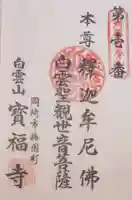 第壱番
本尊 釋迦牟尼佛
白雲聖觀世音菩薩
岡崎市梅園町
白雲山 寳福寺